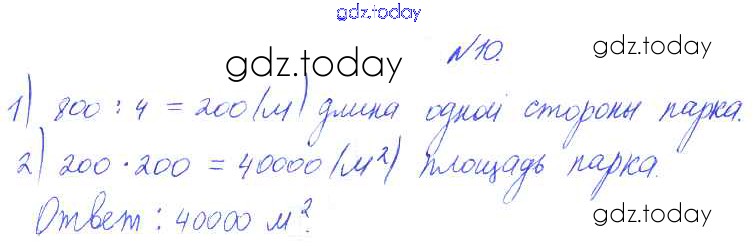 gdz.today
№10.
gdz.today
gdz.today
1) 800 : 4 = 200 (м) длина одной стороны парка.
2) 200 · 200 = 40000 (м²) площадь парка.
Ответ: 40000 м².
gdz.today